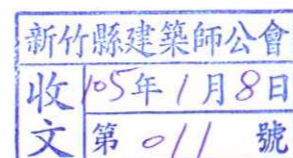 新竹縣建築師公會
收文
105年1月8日
第011號